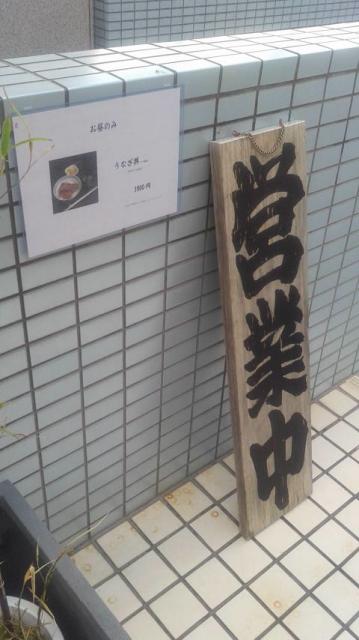 お昼のみ
うなぎ丼
1900円
営業中